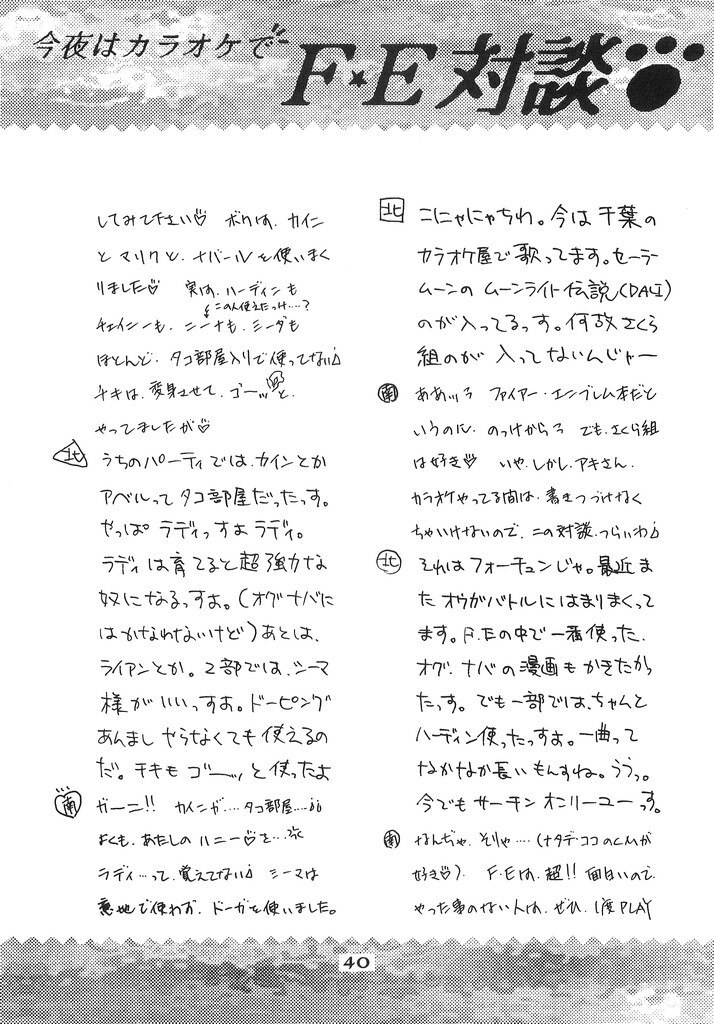 今夜はカラオケで
F★E対談
北 こにゃにゃちわ。今は千葉の
カラオケ屋で歌ってます。セーラー
ムーンの ムーンライト伝説(DALI)
のが入ってるっす。何故さくら
組のが 入ってないんじゃー
南 ああッろ ファイアー・エンブレム本だと
いうのに、のっけからろ でも、さくら組
は好き♡ いや、しかし、アキさん、
カラオケやってる間は、書きつづけなく
ちゃいけないので、この対談、つらいわ♪
北 それはフォーチュンじゃ。最近ま
たオウガバトルにはまりまくって
ます。F.Eの中で一番使った、
オグ、ナバの漫画もかきたかっ
たっす。でも一部では、ちゃんと
ハーディン使ったっすよ。一曲って
なかなか長いもんすね。ううっ。
今でもサーチンオンリーユーっす。
南 なんぢゃ、そりゃ‥‥(ナタデ・ココのCMが
好き♡)。 F・Eは、超!! 面白いので、
やった事のない人は、ぜひ、1度PLAY
してみて下さい♡ ボクは、カイン
と マリクと、ナバールを使いまく
りました♡ 実は、ハーディンも
この人使えたっけ‥‥?
チェイニーも、ニーナも、ミーダも
ほとんど、タコ部屋入りで使ってない♪
チキは、変身させて、ゴーッと、
やってましたが♡
北 うちのパーティでは、カインとか
アベルって タコ部屋だったっす。
やっぱ ラディっすよ ラディ。
ラディは育てると超強力な
奴になるっすよ。(オグ ナバに
はかなわないけど)あとは、
ライアンとか。2部では、シーマ
様がいいっすよ。ドーピング
あんまし やらなくても 使えるの
だ。チキも ゴーッと使ったよ
南 ガーン!! カインが‥‥タコ部屋‥‥
よくも、あたしの ハニー♡を‥‥
ラディ‥‥って、覚えてない♪ シーマは
意地で使わず、ドーガを使いました。
40